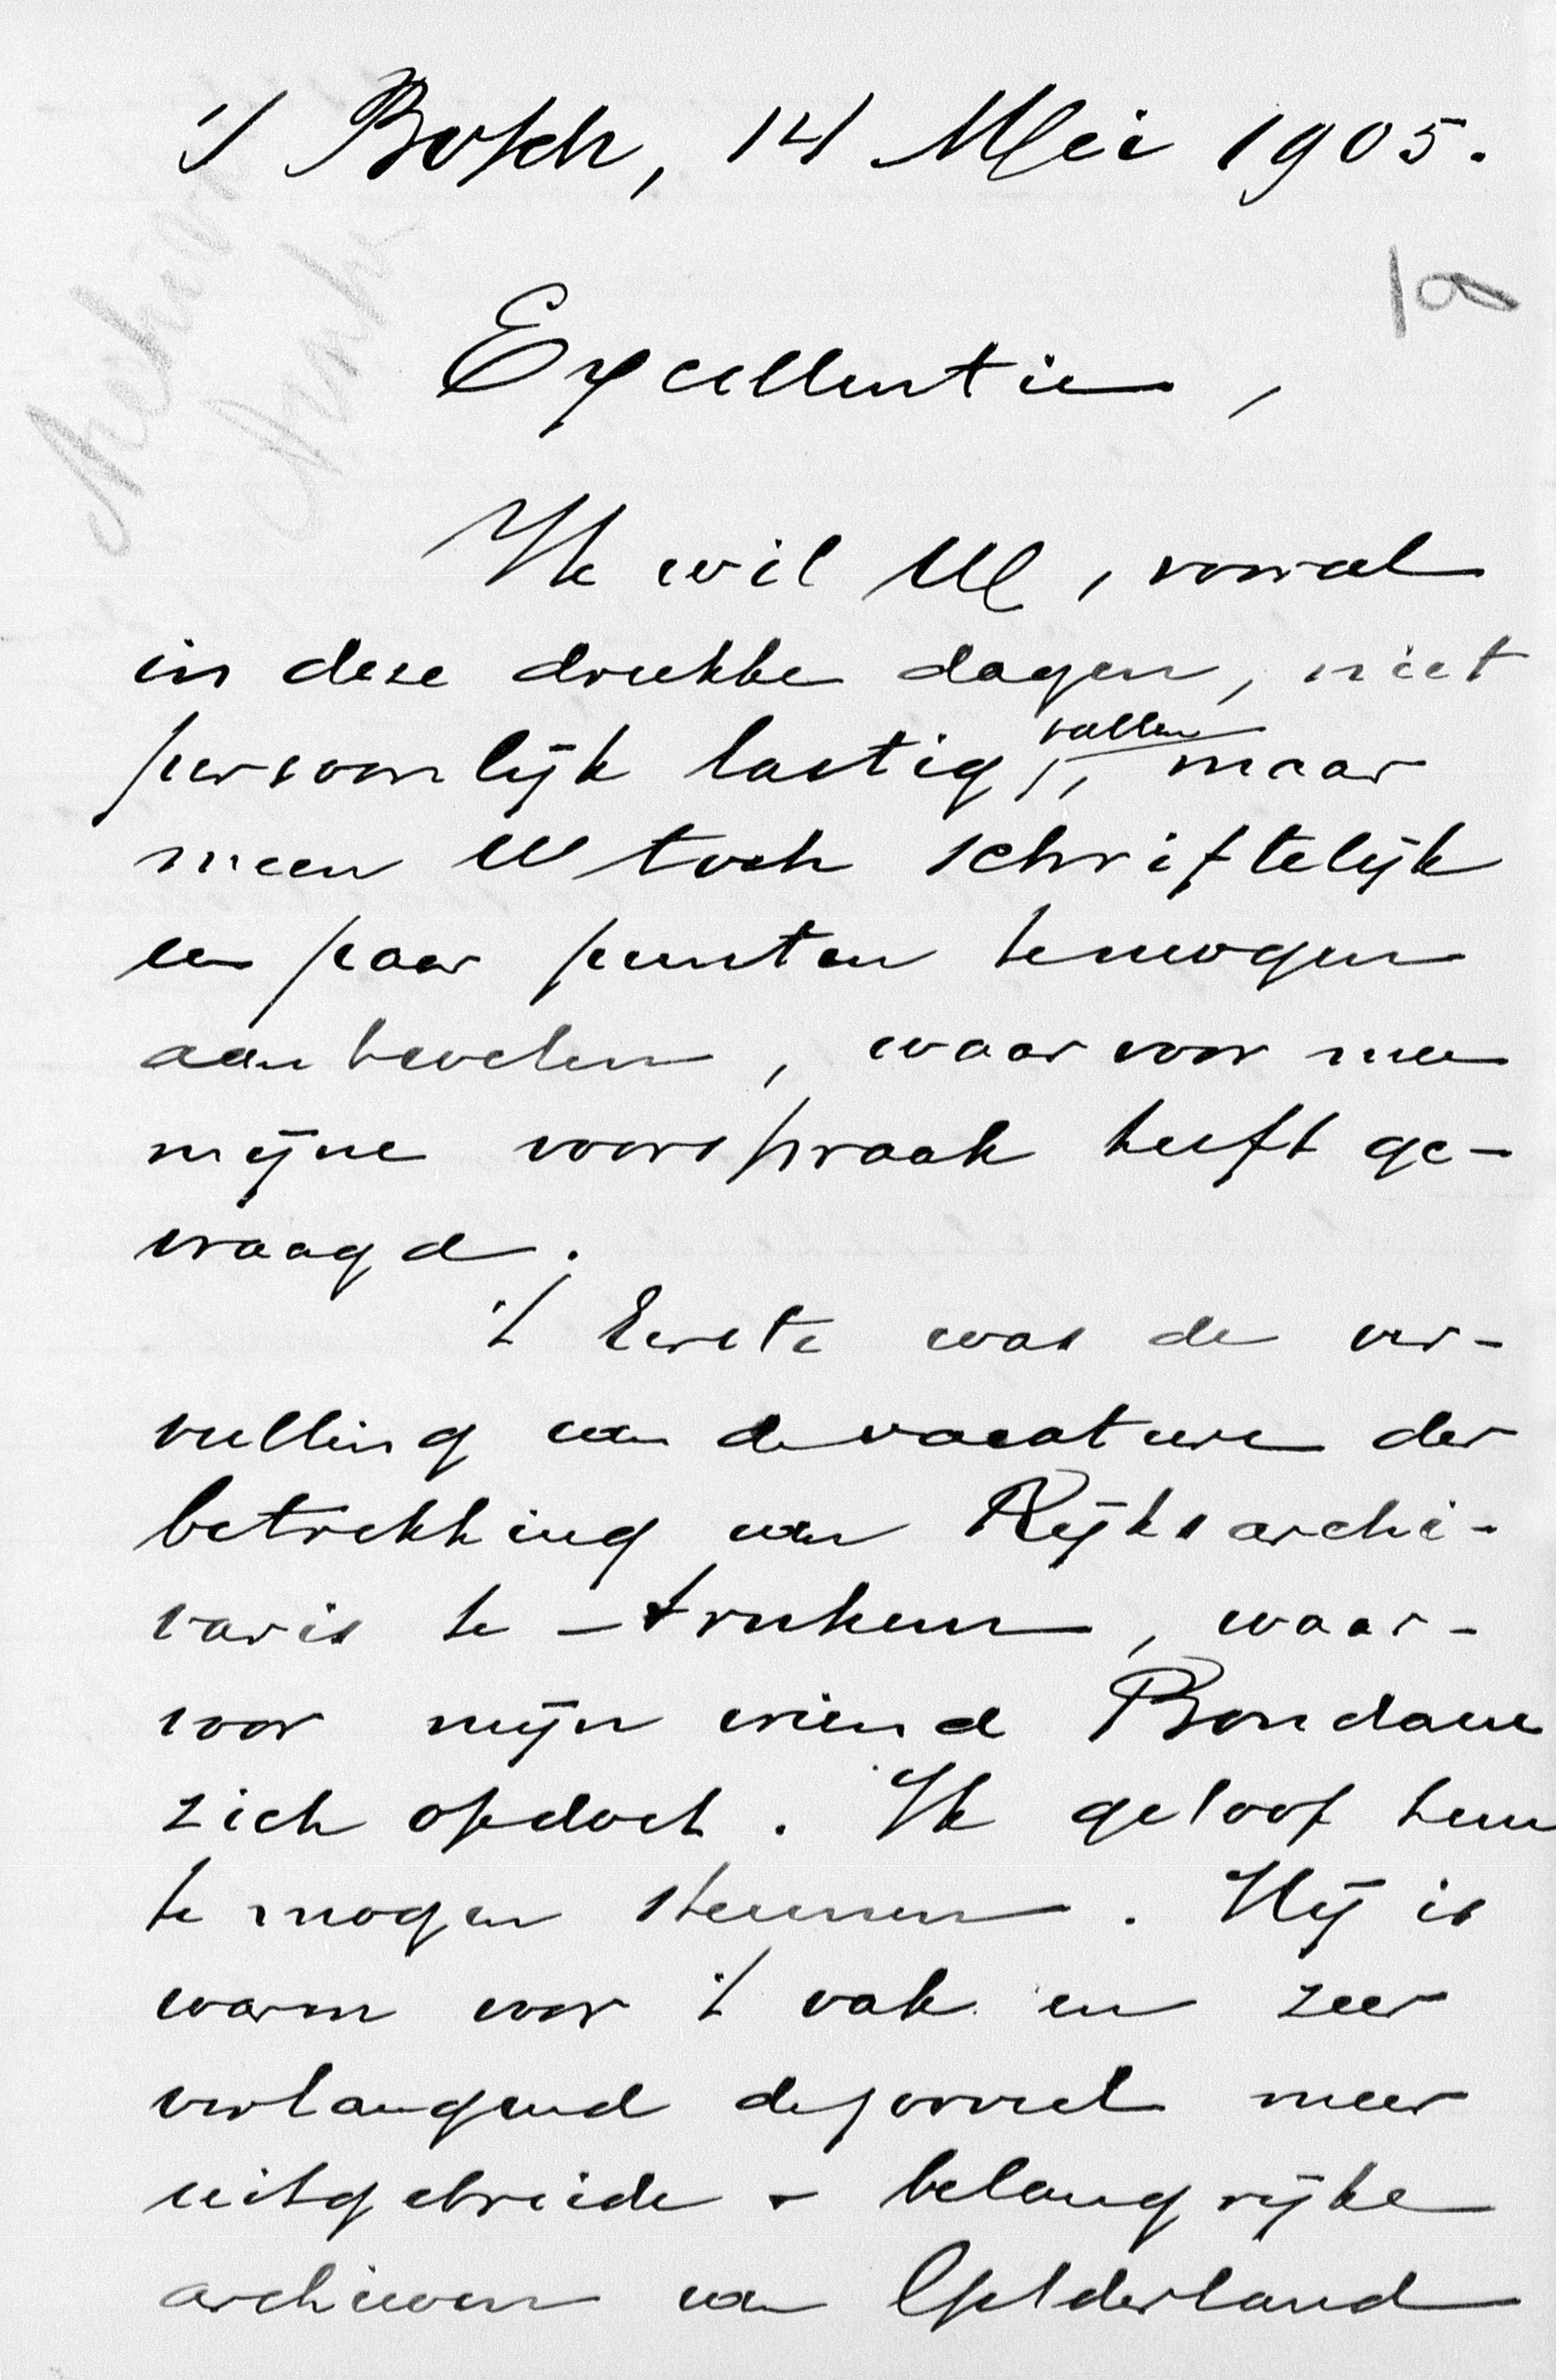 's Bosch, 14 Mei 1905.
Excellentie,
Ik wil U, vooral
in deze drukke dagen, niet
persoonlijk lastig vallen, maar
meen U toch schriftelijk
een paar punten te mogen
aanbevelen, waarvoor men
mijne voorspraak heeft ge-
vraagd.
't Eerste was de ver-
vulling van de vacature der
betrekking van Rijksarchi-
varis te Arnhem, waar-
voor mijn vriend Bondam
zich opdoet. Ik geloof hem
te mogen steunen. Hij is
warm voor 't vak en zeer
verlangend de zooveel meer
uitgebreide & belangrijke
archieven van Gelderland